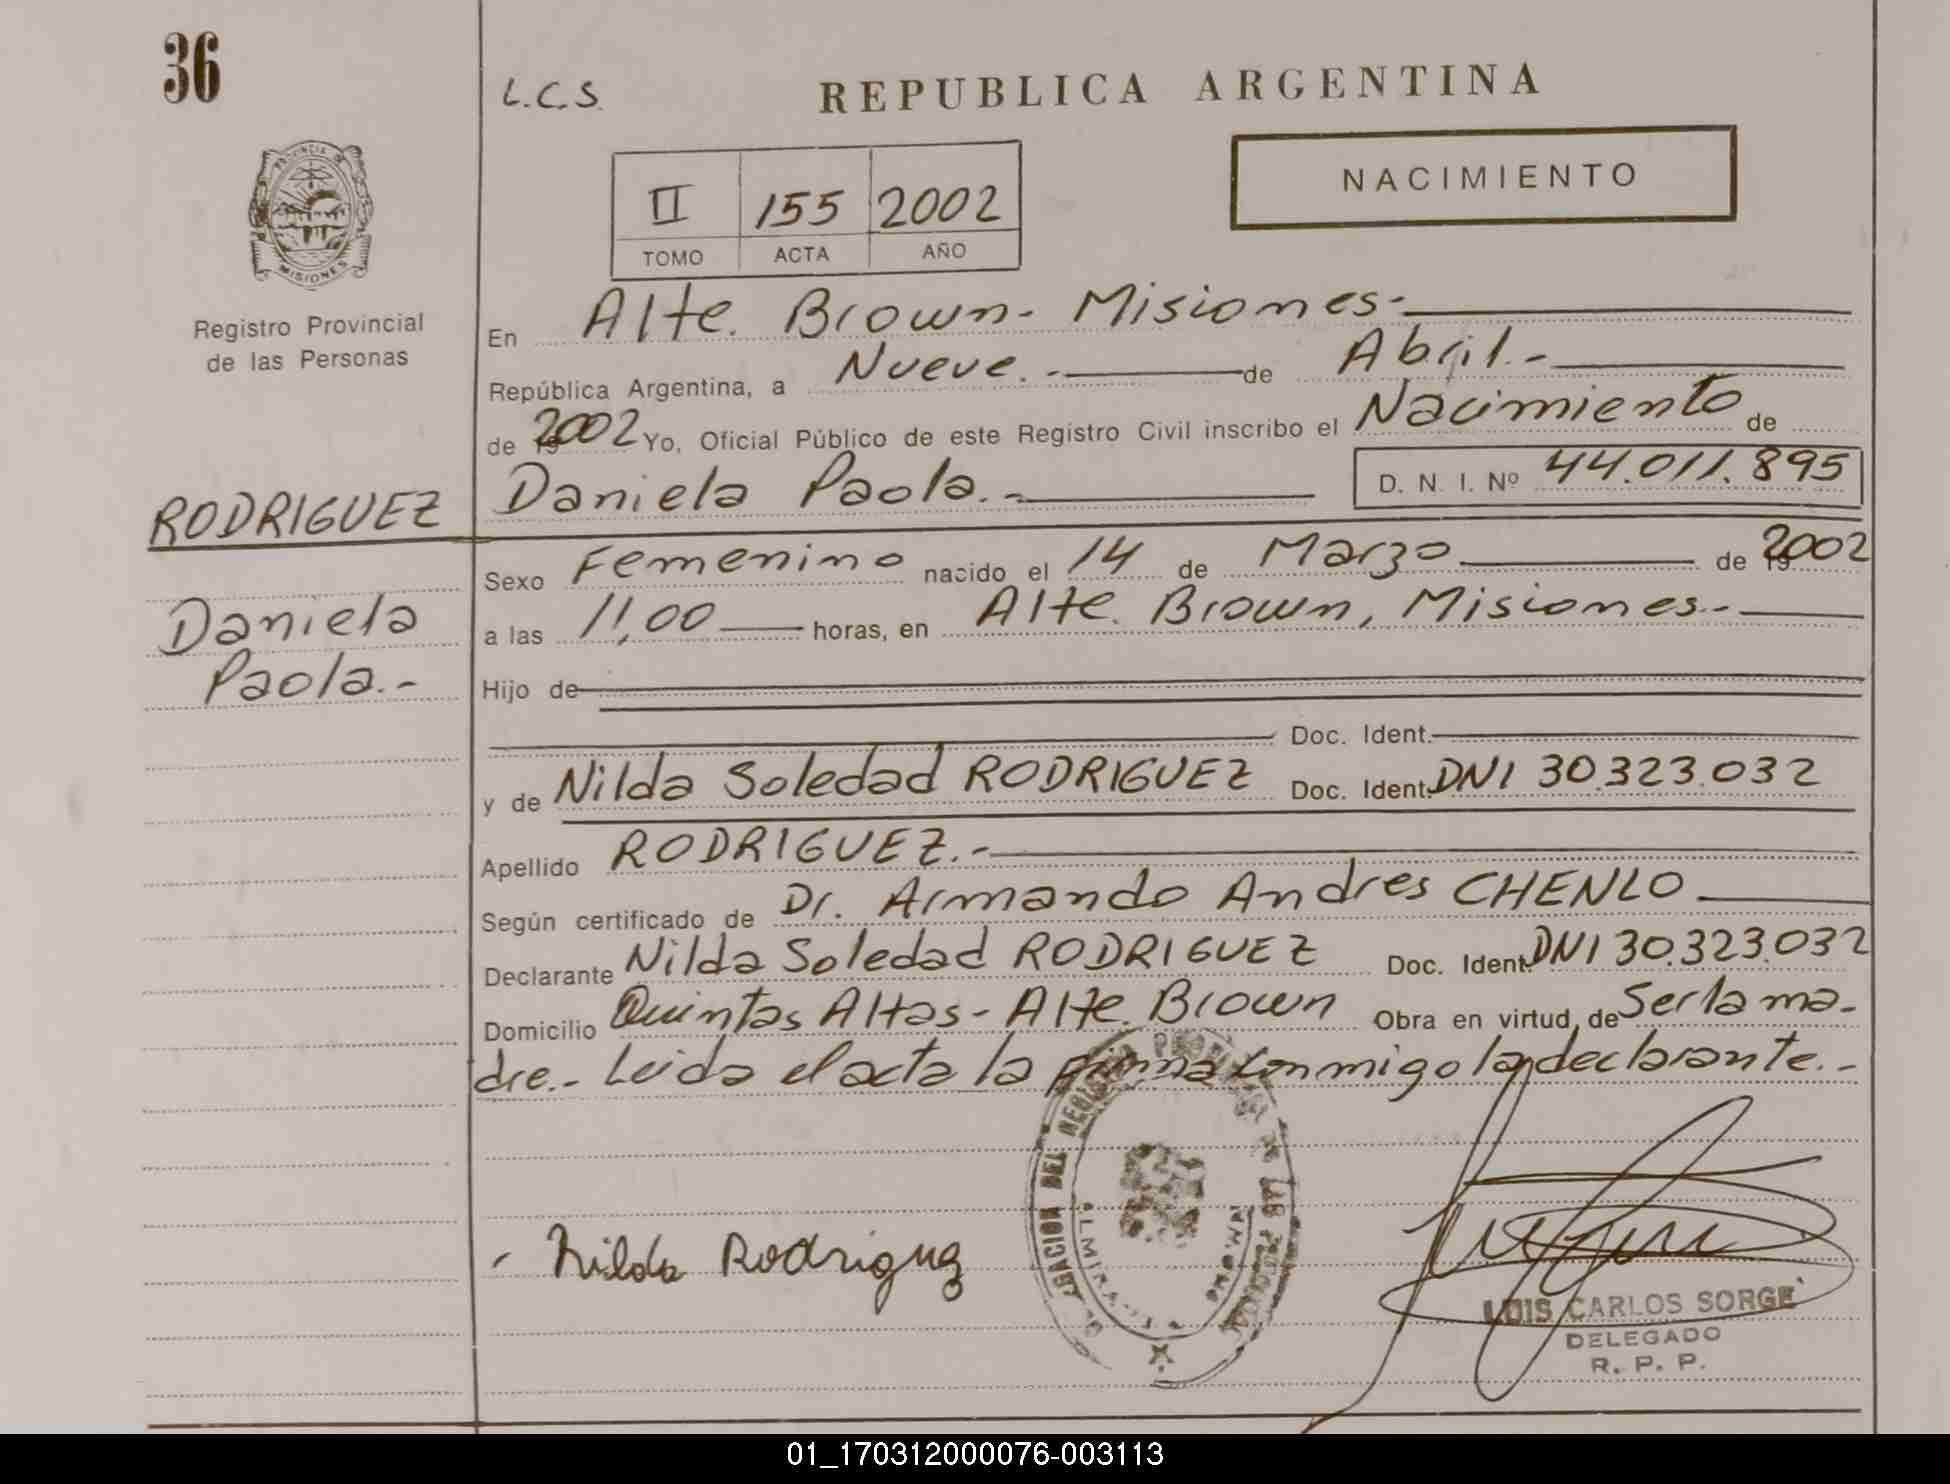 36
L.C.S.
REPUBLICA ARGENTINA
NACIMIENTO
II 155 2002
TOMO ACTA AÑO
PROVINCIA DE
MISIONES
Registro Provincial
de las Personas
En Alte. Brown - Misiones -
República Argentina, a Nueve. - de Abril. -
de 2002 Yo, Oficial Público de este Registro Civil inscribo el Nacimiento de
RODRIGUEZ
Daniela Paola. - D. N. I. Nº 44.011.895
Sexo Femenino nacido el 14 de Marzo de 2002
Daniela
Paola. -
a las 11,00 horas, en Alte. Brown, Misiones. -
Hijo de
Doc. Ident.
y de Nilda Soledad RODRIGUEZ Doc. Ident. DNI 30.323.032
Apellido RODRIGUEZ. -
Según certificado de Dr. Armando Andres CHENLO
Declarante Nilda Soledad RODRIGUEZ Doc. Ident. DNI 30.323.032
Domicilio Quintas Altas - Alte. Brown Obra en virtud de Ser la ma-
dre. - Leida el acta la firma conmigo la declarante. -
Nilda Rodriguez
LUIS CARLOS SORGE
DELEGADO
R. P. P.
01_170312000076-003113